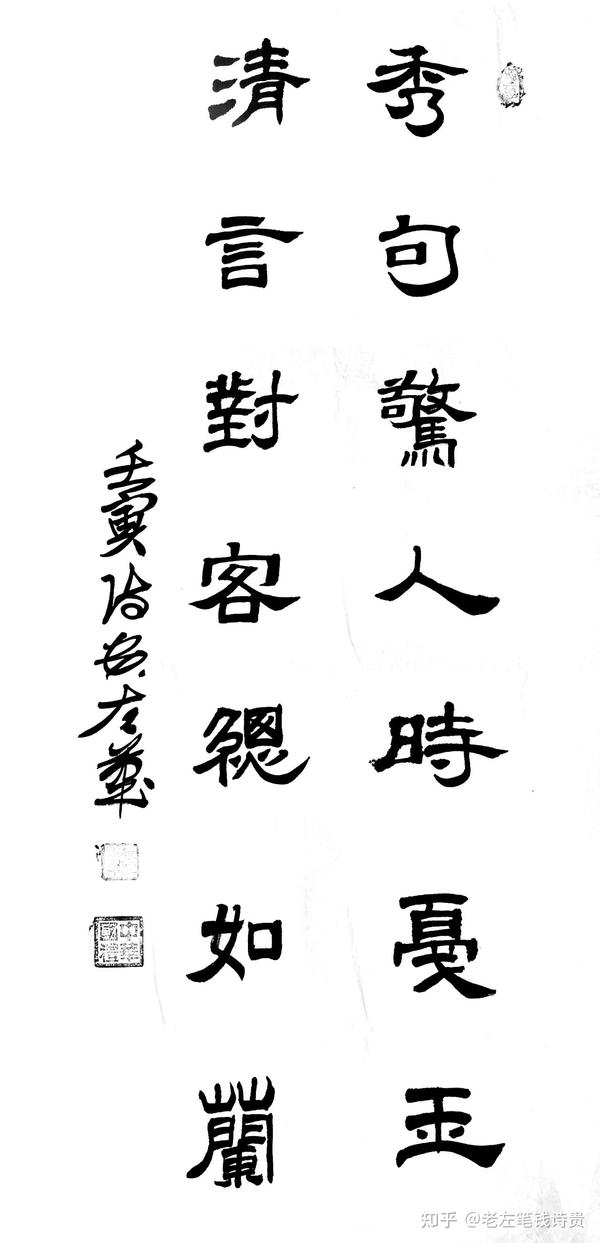 秀句驚人時戛玉
清言對客總如蘭
壬寅
中華國禮
知乎 @老左笔钱诗贵